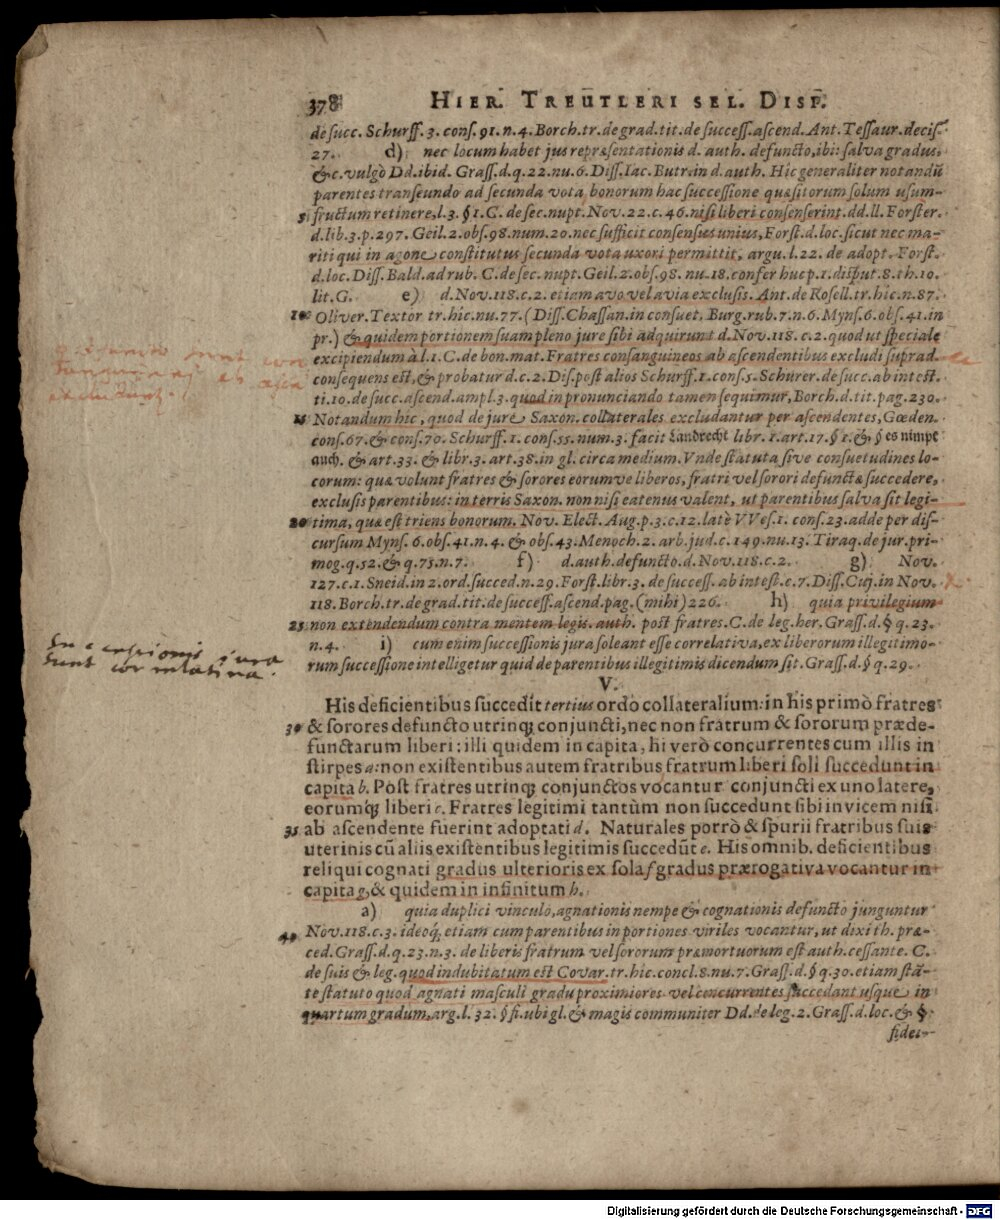 378 HIER. TREUTLERI SEL. DISP.
de succ. Schurff. 3. cons. 91. n. 4. Borch. tr. de grad. tit. de success. ascend. Ant. Tessaur. decis.
27. d) nec locum habet jus repræsentationis d. auth. defuncto, ibi: salva gradus.
&c. vulgò Dd. ibid. Grass. d. q. 22. nu. 6. Diss. Iac. Butr. in d. auth. Hic generaliter notandũ
parentes transeundo ad secunda vota, bonorum hac successione quæsitorum solum usum-
5 fructum retinere, l. 3. § 1. C. de sec. nupt. Nov. 22. c. 46. nisi liberi consenserint. dd. ll. Forster.
d. lib. 3. p. 297. Geil. 2. obs. 98. num. 20. nec sufficit consensus unius, Forst. d. loc. sicut nec ma-
riti qui in agone constitutus secunda vota uxori permittit, argu. l. 22. de adopt. Forst.
d. loc. Diss. Bald. ad rub. C. de sec. nupt. Geil. 2. obs. 98. nu. 18. confer huc p. 1. disput. 8. th. 10.
lit. G. e) d. Nov. 118. c. 2. etiam avo vel avia exclusis. Ant. de Rosell. tr. hic. n. 87.
10 Oliver. Textor tr. hic. nu. 77. (Diss. Chassan. in consuet. Burg. rub. 7. n. 6. Myns. 6. obs. 41. in
pr.) & quidem portionem suam pleno jure sibi adquirunt d. Nov. 118. c. 2. quod ut speciale
excipiendum à l. 1. C. de bon. mat. Fratres consanguineos ab ascendentibus excludi suprad.
consequens est, & probatur d. c. 2. Dis. post alios Schurff. 1. cons. 5. Schurer. de succ. ab intest.
ti. 10. de succ. ascend. ampl. 3. quod in pronunciando tamen sequimur, Borch. d. tit. pag. 230.
15 Notandum hic, quod de jure Saxon. collaterales excludantur per ascendentes, Gœden.
cons. 67. & cons. 70. Schurff. 1. cons. 55. num. 3. facit Landrecht libr. 1. art. 17. § 1. & § es nimpt
auch. & art. 33. & libr. 3. art. 38. in gl. circa medium. Vnde statuta sive consuetudines lo-
corum: quæ volunt fratres & sorores eorumve liberos, fratri vel sorori defunctæ succedere,
exclusis parentibus: in terris Saxon. non nisi eatenus valent, ut parentibus salva sit legi-
20 tima, quæ est triens bonorum. Nov. Elect. Aug. p. 3. c. 12. latè VVes. 1. cons. 23. adde per dis-
cursum Myns. 6. obs. 41. n. 4. & obs. 43. Menoch. 2. arb. jud. c. 149. nu. 13. Tiraq. de jur. pri-
mog. q. 52. & q. 75. n. 7. f) d. auth. defuncto. d. Nov. 118. c. 2. g) Nov.
127. c. 1. Sneid. in 2. ord. succed. n. 29. Forst. libr. 3. de success. ab intest. c. 7. Diss. Cuj. in Nov.
118. Borch. tr. de grad. tit. de success. ascend. pag. (mihi) 226. h) quia privilegium
25 non extendendum contra mentem legis. auth. post fratres. C. de leg. her. Grass. d. § q. 23.
n. 4. i) cum enim successionis jura soleant esse correlativa, ex liberorum illegitimo-
rum successione intelligetur quid de parentibus illegitimis dicendum sit. Grass. d. § q. 29.
Successionis jura
sunt correlativa.
V.
His deficientibus succedit tertius ordo collateralium: in his primò fratres
30 & sorores defuncto utrinq; conjuncti, nec non fratrum & sororum præde-
functarum liberi: illi quidem in capita, hi verò concurrentes cum illis in
stirpes a: non existentibus autem fratribus fratrum liberi soli succedunt in
capita b. Post fratres utrinq; conjunctos vocantur conjuncti ex uno latere,
eorumq; liberi c. Fratres legitimi tantùm non succedunt sibi invicem nisi
35 ab ascendente fuerint adoptati d. Naturales porrò & spurii fratribus suis
uterinis cũ aliis existentibus legitimis succedũt e. His omnib. deficientibus
reliqui cognati gradus ulterioris ex sola f gradus prærogativa vocantur in
capita g, & quidem in infinitum h.
a) quia duplici vinculo, agnationis nempe & cognationis defuncto junguntur
40 Nov. 118. c. 3. ideoq; etiam cum parentibus in portiones viriles vocantur, ut dixi th. præ-
ced. Grass. d. q. 23. n. 3. de liberis fratrum vel sororum præmortuorum est auth. cessante. C.
de suis & leg. quod indubitatum est Covar. tr. hic. concl. 8. nu. 7. Grass. d. § q. 30. etiam stã-
te statuto quod agnati masculi gradu proximiores vel concurrentes succedant usque in
quartum gradum, arg. l. 32. § fi. ubi gl. & magis communiter Dd. de leg. 2. Grass. d. loc. & §
fidei-
Digitalisierung gefördert durch die Deutsche Forschungsgemeinschaft - DFG